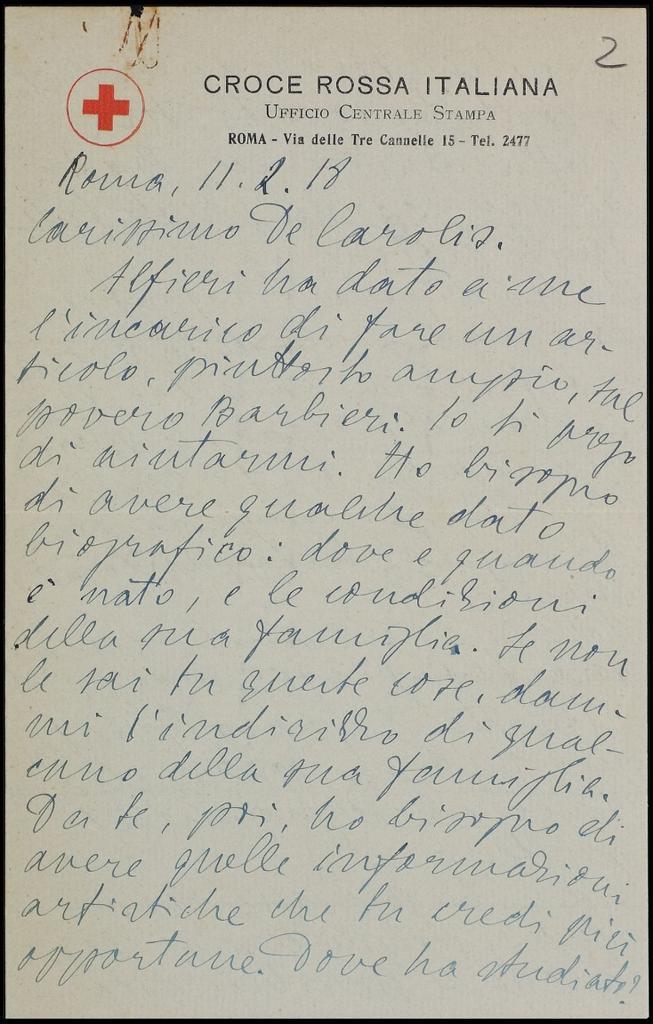 2
CROCE ROSSA ITALIANA
UFFICIO CENTRALE STAMPA
ROMA - Via delle Tre Cannelle 15 - Tel. 2477
Roma, 11. 2. 18
Carissimo De Carolis.
Alfieri ha dato a me
l'incarico di fare un ar-
ticolo, piuttosto ampio, sul
povero Barbieri. Io ti prego
di aiutarmi. Ho bisogno
di avere qualche dato
biografico: dove e quando
è nato, e le condizioni
della sua famiglia. Se non
le sai tu queste cose, dam-
mi l'indirizzo di qual-
cuno della sua famiglia.
Da te, poi, ho bisogno di
avere quelle informazioni
artistiche che tu credi più
opportune. Dove ha studiato?